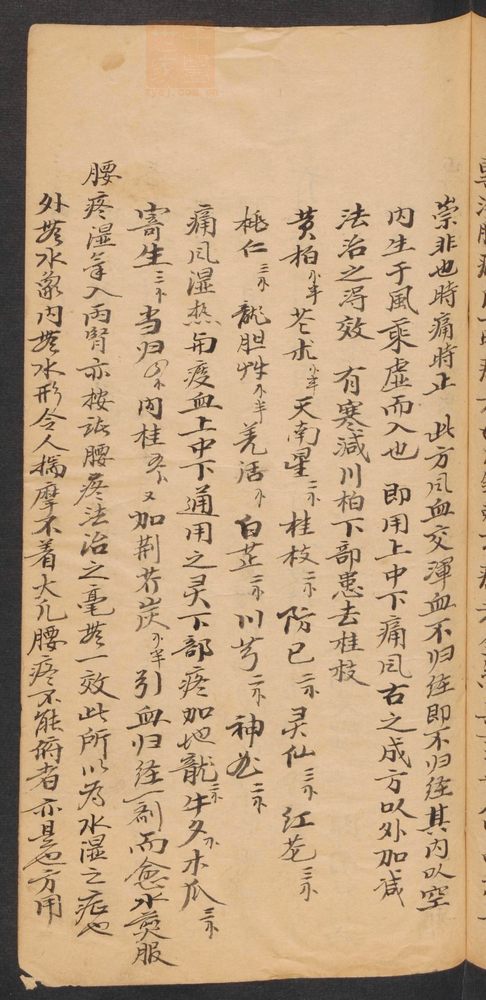 崇非也時痛時止　此方风血交渾血不归经即不归经其内以空
内生于風乘虛而入也　即用上中下痛风古之成方以外加減
法治之得效　有寒減川柏下部患去桂枝
黄柏小半苍术小半天南星二个桂枝二个防已二个灵仙三个红花三个
桃仁三个龍胆草小半羌活个白芷二个川芎二个神曲二个
痛风湿热与痰血上中下通用之灵下部疼加地龍二个牛夕个木瓜三个
寄生三个当归四个肉桂又加荆芥炭小半引血归经一剂而愈水煎服
腰疼湿氣入两腎亦按諸腰疼法治之毫無一效此所以為水湿之症也
外無水象内無水形令人揣摩不着大凡腰疼不能俯者亦是也方用